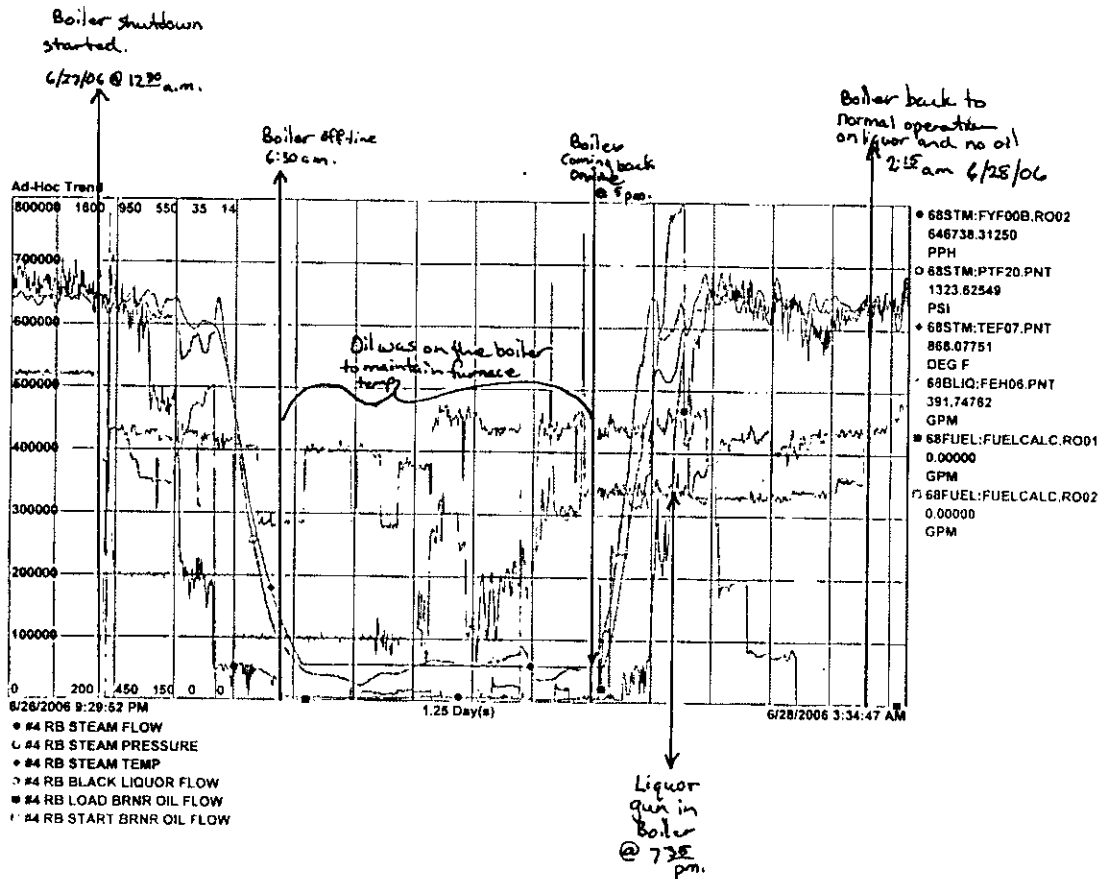 Boiler shutdown
started.
6/27/06 @ 12³⁰ a.m.
Boiler off-line
6:30 a.m.
Boiler
Coming back
Online
@ 5 pm.
Boiler back to
normal operation
on liquor and no oil
2:15 am 6/28/06
Ad-Hoc Trend
800000 1600 950 550 35 14
700000
600000
500000
400000
300000
200000
100000
0 200 450 150 0 0
Oil was on the boiler
to maintain furnace
temp
6/26/2006 9:29:52 PM
1.25 Day(s)
6/28/2006 3:34:47 AM
68STM:FYF00B.RO02
646738.31250
PPH
68STM:PTF20.PNT
1323.62549
PSI
68STM:TEF07.PNT
868.07751
DEG F
68BLIQ:FEH06.PNT
391.74762
GPM
68FUEL:FUELCALC.RO01
0.00000
GPM
68FUEL:FUELCALC.RO02
0.00000
GPM
#4 RB STEAM FLOW
#4 RB STEAM PRESSURE
#4 RB STEAM TEMP
#4 RB BLACK LIQUOR FLOW
#4 RB LOAD BRNR OIL FLOW
#4 RB START BRNR OIL FLOW
Liquor
gun in
Boiler
@ 7³⁵
pm.